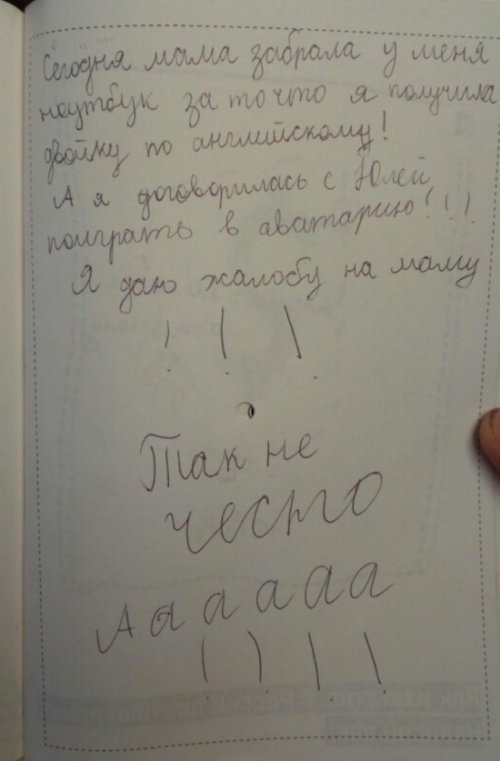 Сегодня мама забрала у меня
ноутбук за то что я получила
двойку по английскому!
А я договорилась с Юлей
поиграть в аватарию!!!
Я даю жалобу на маму
! ! !
Так не
честно
Аааааа
! ! ! !